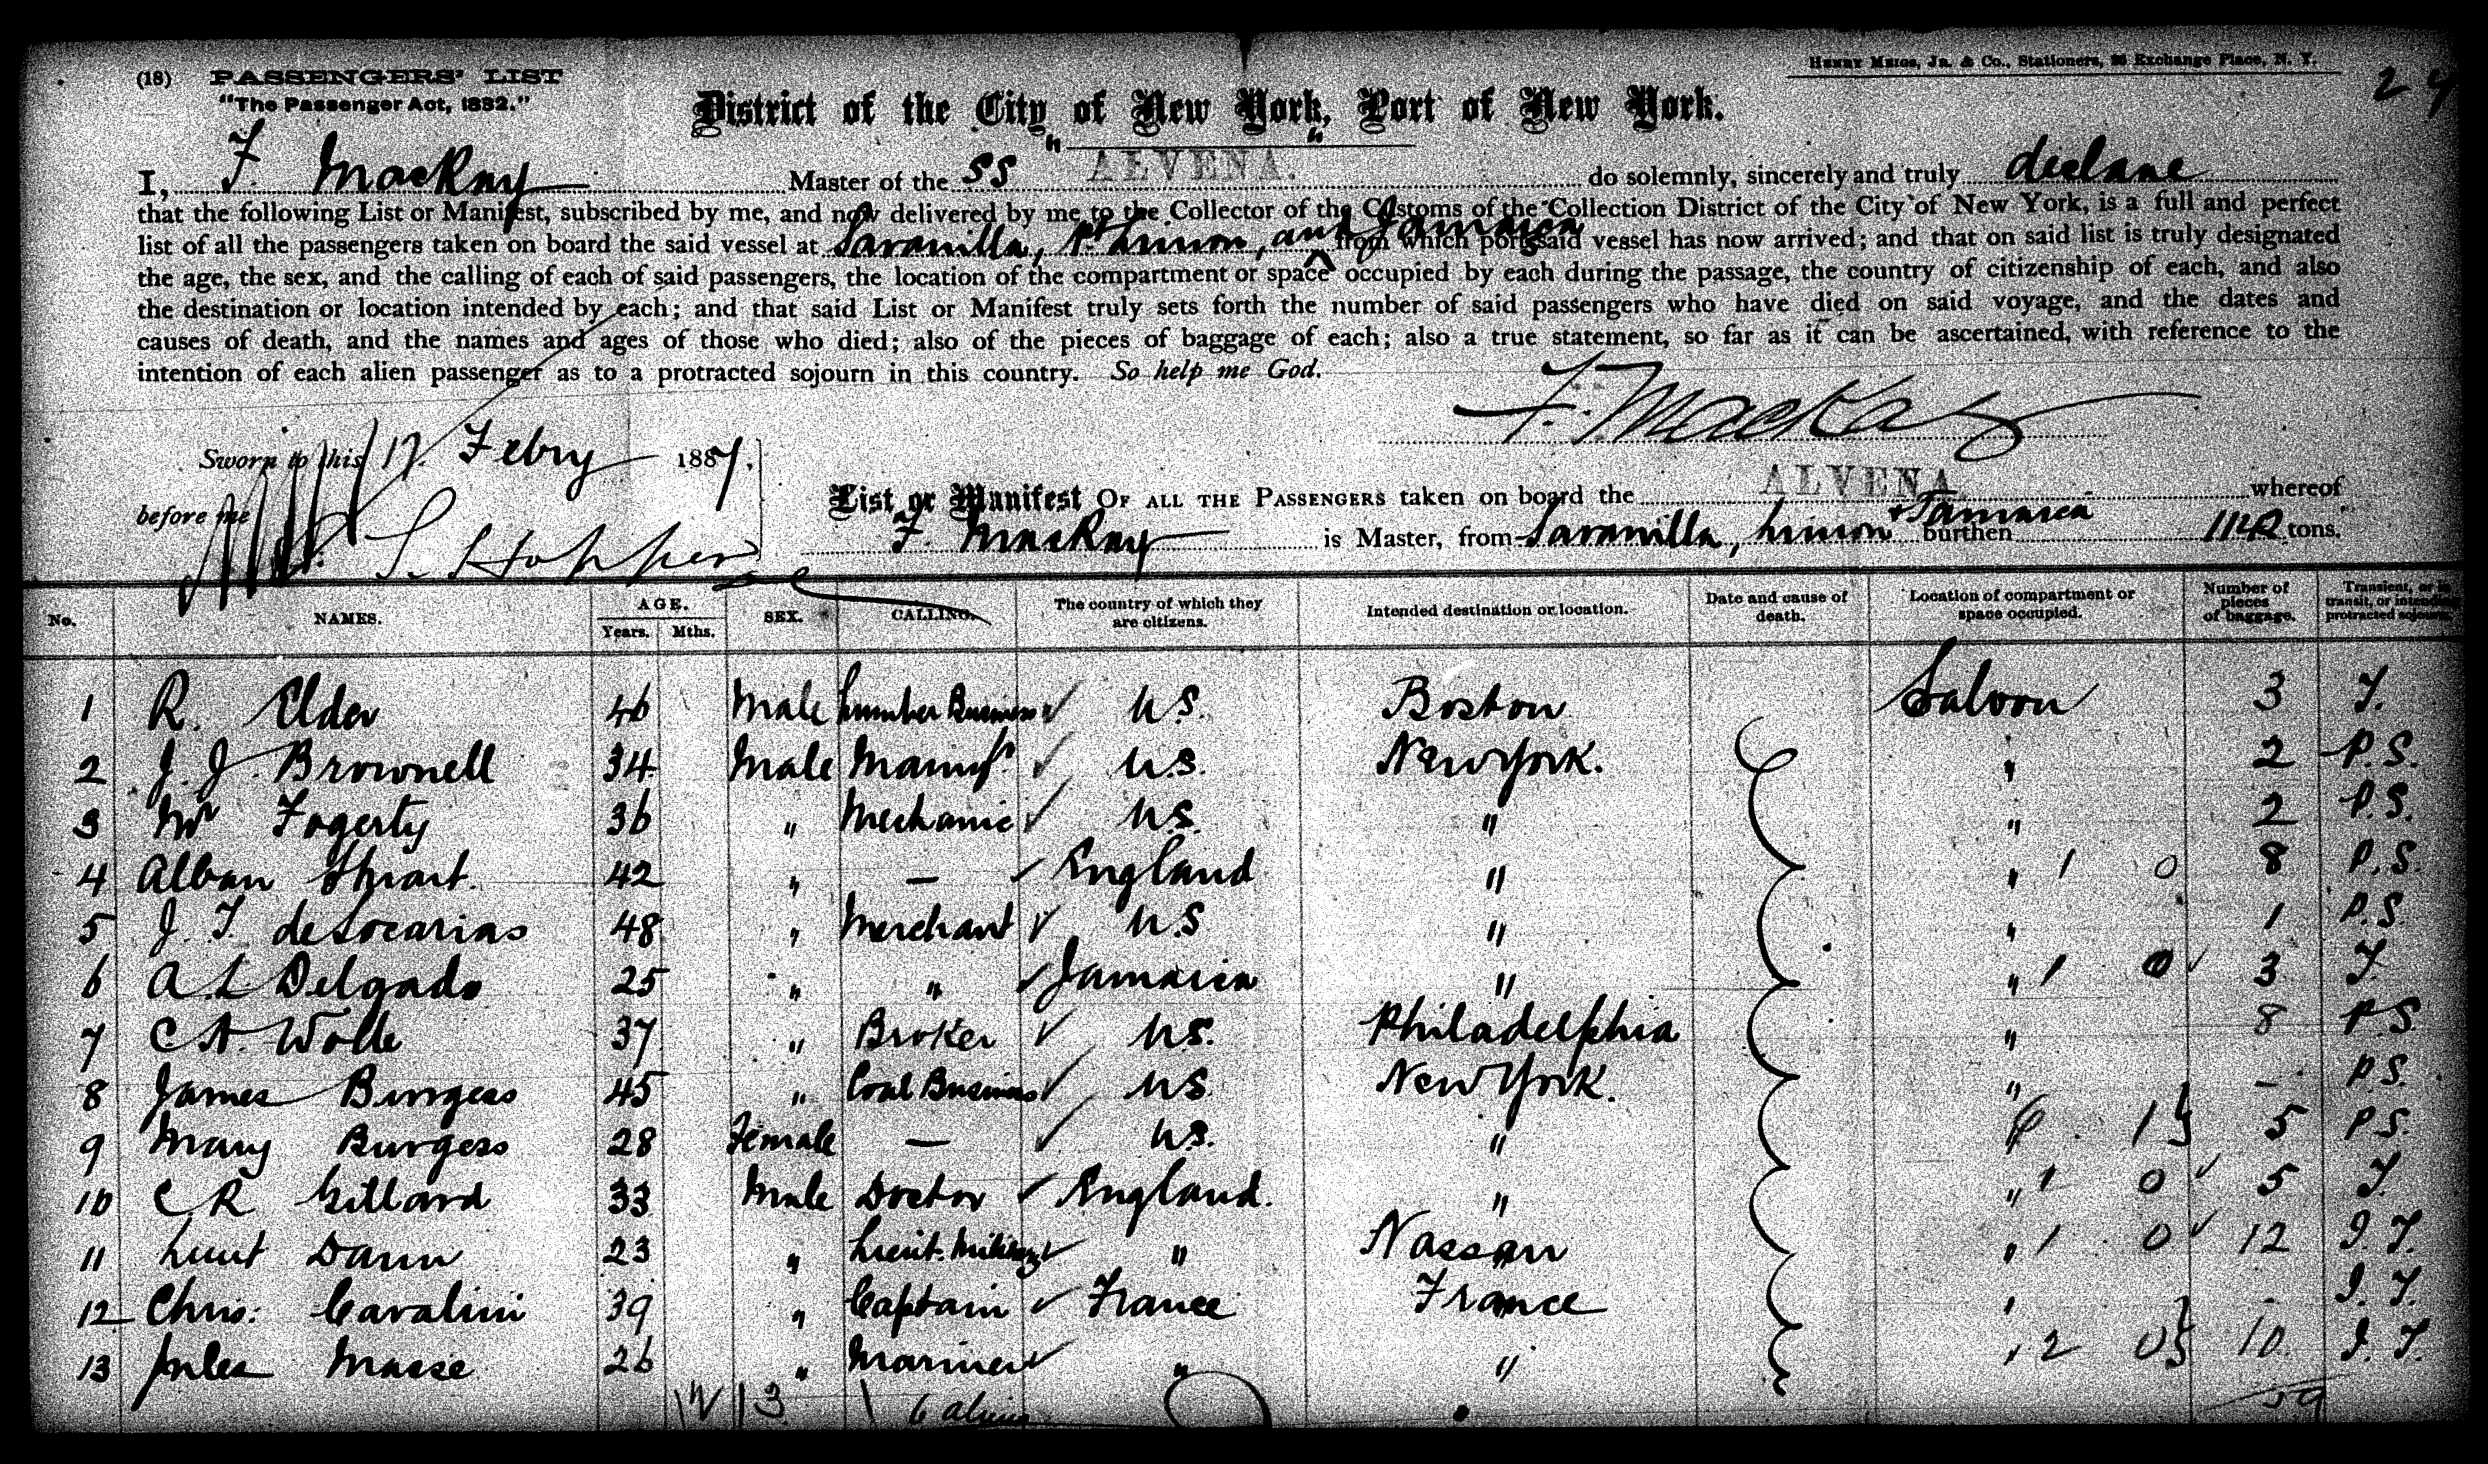 (18) PASSENGERS' LIST
HENRY MEIGS, JR. & CO., Stationers, Exchange Place, N. Y.
"The Passenger Act, 1882."
District of the City of New York, Port of New York.
I, F. MacKay Master of the SS "ALVENA." do solemnly, sincerely and truly declare
that the following List or Manifest, subscribed by me, and now delivered by me to the Collector of the Customs of the Collection District of the City of New York, is a full and perfect
list of all the passengers taken on board the said vessel at Savanilla, Pt Limon, and Jamaica from which port said vessel has now arrived; and that on said list is truly designated
the age, the sex, and the calling of each of said passengers, the location of the compartment or space occupied by each during the passage, the country of citizenship of each, and also
the destination or location intended by each; and that said List or Manifest truly sets forth the number of said passengers who have died on said voyage, and the dates and
causes of death, and the names and ages of those who died; also of the pieces of baggage of each; also a true statement, so far as it can be ascertained, with reference to the
intention of each alien passenger as to a protracted sojourn in this country. So help me God.
F. MacKay
Sworn to this 17. Febry 1887.
before me
S. Hopper
List or Manifest OF ALL THE PASSENGERS taken on board the ALVENA whereof
F. MacKay is Master, from Savanilla, Limon & Jamaica burthen 1142 tons.
No. NAMES. AGE. Years. Mths. SEX. CALLING. The country of which they are citizens. Intended destination or location. Date and cause of death. Location of compartment or space occupied. Number of pieces of baggage. Transient, or in transit, or intending protracted sojourn.
1 R. Elder 46 Male Lumber Business U.S. Boston Saloon 3 T.
2 J. J. Brownell 34 Male Manuf. U.S. New York. " 2 P.S.
3 Mr Fogerty 36 " Mechanic U.S. " " 2 P.S.
4 Alban 42 " — England " " 1 0 8 P.S.
5 J. T. 48 " Merchant U.S " " 1 P.S.
6 A. L Delgado 25 " " Jamaica " " 1 0 3 T.
7 C A. Wolle 37 " Broker U.S. Philadelphia " 8 P.S.
8 James Burgess 45 " Coal Business U.S. New York. " – P.S.
9 Mary Burgess 28 Female — U.S. " 1 5 P.S.
10 C R Gillard 33 Male Doctor England. " " 1 0 5 T
11 Lieut Dann 23 " Lieut. Military " Nassau " 1 0 12 I. T.
12 Chris. Cavalini 39 " Captain France France " - I. T.
13 Jules Masse 26 " Mariner " " " 2 0 10. I. T.
13 6 aliens 59